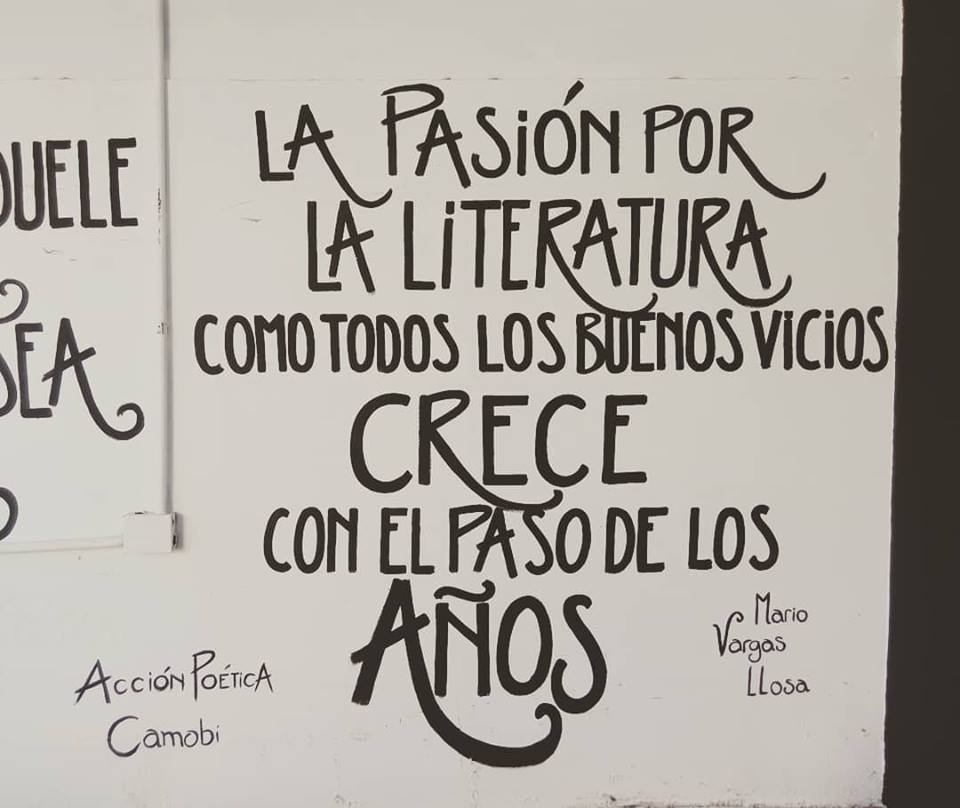 LA PASIÓN POR
LA LITERATURA
COMO TODOS LOS BUENOS VICIOS
CRECE
CON EL PASO DE LOS
AÑOS
Mario
Vargas
LLosa
Acción Poética
Camobi